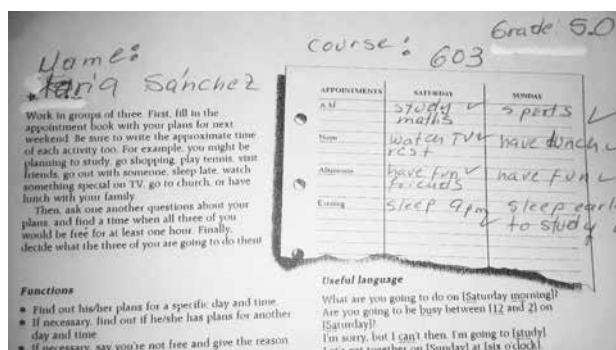 Grade 5.0
Name:
course: 603
Sánchez
Work in groups of three. First, fill in the
appointment book with your plans for next
weekend. Be sure to write the approximate time
of each activity too. For example, you might be
planning to study, go shopping, play tennis, visit
friends, go out with someone, sleep late, watch
something special on TV, go to church, or have
lunch with your family.
Then, ask one another questions about your
plans, and find a time when all three of you
would be free for at least one hour. Finally,
decide what the three of you are going to do then!
APPOINTMENTS SATURDAY SUNDAY
A.M. study sports
maths
Noon watch TV have lunch
rest
Afternoon have fun have fun
friends
Evening sleep 9pm sleep early
to study
Functions
• Find out his/her plans for a specific day and time.
• If necessary, find out if he/she has plans for another
day and time.
• If necessary, say you're not free and give the reason
Useful language
What are you going to do on [Saturday morning]?
Are you going to be busy between [12 and 2] on
[Saturday]?
I'm sorry, but I can't then. I'm going to [study]
Let's get together on [Sunday] at [six o'clock]